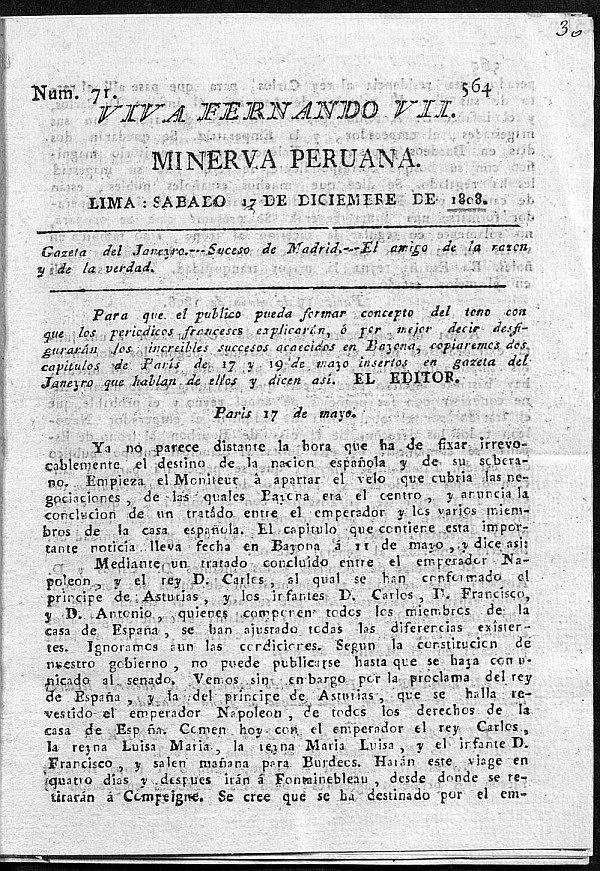 30
Num. 71. 564
VIVA FERNANDO VII.
MINERVA PERUANA.
LIMA : SABADO 17 DE DICIEMBRE DE 1808.
Gazeta del Janeyro.---Suceso de Madrid.---El amigo de la razon
y de la verdad.
Para que el publico pueda formar concepto del tono con
que los periodicos franceses explicarán, ó por mejor decir desfi-
gurarán los increibles succesos acaecidos en Bayona, copiaremos dos
capitulos de Paris de 17 y 19 de mayo insertos en gazeta del
Janeyro que hablan de ellos y dicen asi. EL EDITOR.
Paris 17 de mayo.
Ya no parece distante la hora que ha de fixar irrevo-
cablemente el destino de la nacion española y de su sobera-
no. Empieza el Moniteur á apartar el velo que cubria las ne-
gociaciones, de las quales Bayona era el centro, y anuncia la
conclucion de un tratado entre el emperador y los varios miem-
bros de la casa española. El capitulo que contiene esta impor-
tante noticia lleva fecha en Bayona á 11 de mayo, y dice asi:
Mediante un tratado concluido entre el emperador Na-
poleon, y el rey D. Carlos, al qual se han conformado el
principe de Asturias, y los infantes D. Carlos, D. Francisco,
y D. Antonio, quienes componen todos los miembros de la
casa de España, se han ajustado todas las diferencias existen-
tes. Ignoramos aun las condiciones. Segun la constitucion de
nuestro gobierno, no puede publicarse hasta que se haya comu-
nicado al senado. Vemos sin embargo por la proclama del rey
de España, y la del príncipe de Asturias, que se halla re-
vestido el emperador Napoleon, de todos los derechos de la
casa de España. Comen hoy con el emperador el rey Carlos,
la reyna Luisa Maria, la reyna Maria Luisa, y el infante D.
Francisco, y salen mañana para Burdeos. Harán este viage en
quatro dias y despues irán á Fontainebleau, desde donde se re-
tirarán á Compeigne. Se cree que se ha destinado por el em-